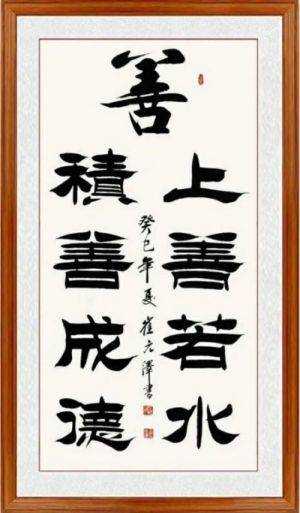 善
上善若水
積善成德
癸巳年夏 崔大澤書